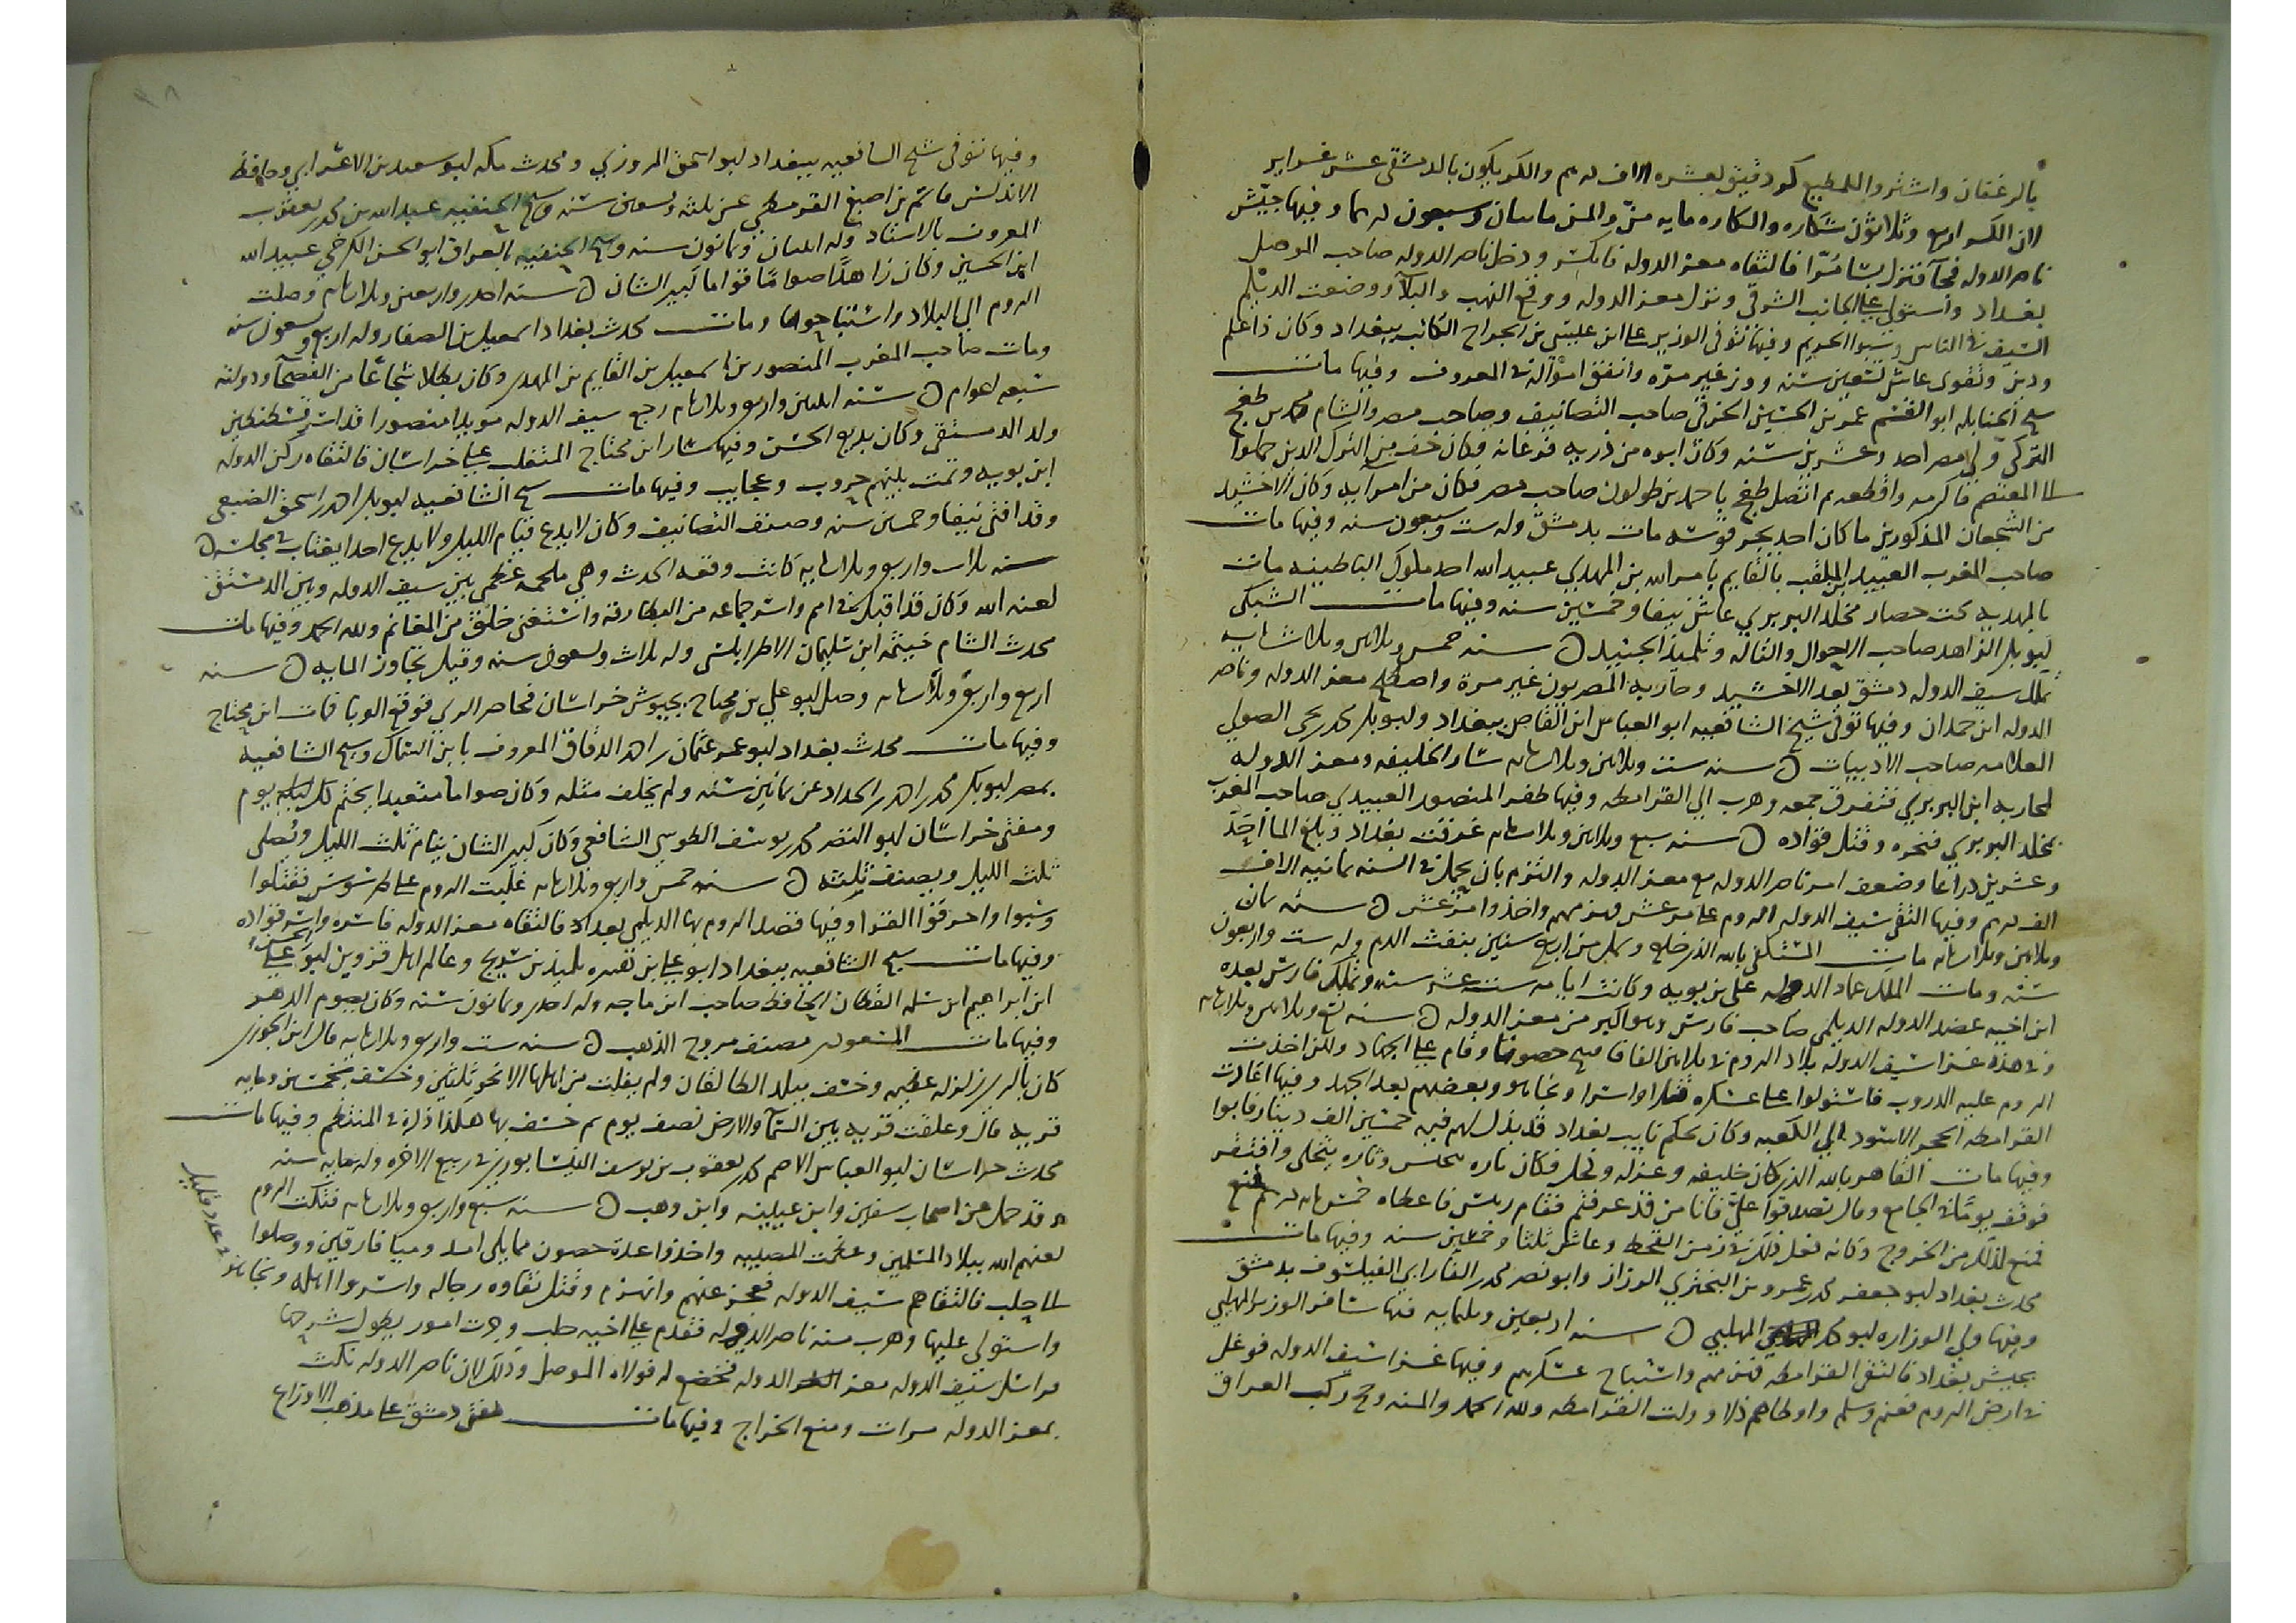 بالرغفان واشتروا للمطيع كر دقيق بعشره الاف درهم والكر يكون بالدمشقي عشر غراير
لان الكر اربع وثلاثون شكاره والكاره مايه منّ والمن مايتان وسبعون درهما وفيها جيّش
ناصر الدوله فجآ فنزل بسامُرّا فالتقاه معز الدوله فانكسر ودخل ناصر الدوله صاحب الموصل
بغداد واستولى على الجانب الشرقي ونزل معز الدوله ووقع النهب والبلآ ووضعت الديلم
السيف في الناس وسبوا الحريم وفيها توفى الوزير على ابن عيسى بن الجراح الكاتب ببغداد وكان ذا علم
ودين وتقوى عاش تسعين سنه ووزر غير مرّه وانفق امواله في المعروف وفيها مات
شيخ الحنابله ابو القسم عمر بن الحسين الخرقي صاحب التصانيف وصاحب مصر والشام محمد بن طغج
التركي ولي مصر احد وعشرين سنه وكان ابوه من ذريه فرغانه وكان جف من الترك الذين حملوا
الى المعتصم فاكرمه واقطعه ثم اتصل طغج باحمد بن طولون صاحب مصر فكان من امرآيه وكان الاخشيد
من الشجعان المذكورين ما كان احد يجر قوسه مات بدمشق وله ست وسبعون سنه وفيها مات
صاحب المغرب العبيدي الملقب بالقايم بامر الله بن المهدي عبيد الله احد ملوك الباطينه مات
بالمهديه تحت حصار مخلد البربري عاش نيفا وخمسين سنه وفيها مات الشبلى
ابو بكر الزاهد صاحب الاحوال والتاله وتلميذ الجنيد ۞ سنه خمس وثلاثين وثلاثمائه
تملك سيف الدوله دمشق بعد الاخشيد وحاربه المصريون غير مرة واصطلح معز الدوله وناصر
الدوله ابن حمدان وفيها توفى شيخ الشافعيه ابو العباس ابن القاص ببغداد وابو بكر محمد بن يحيى الصولي
العلامه صاحب الادبيات ۞ سنه ست وثلاثين وثلاثمايه سار الخليفه ومعز الدوله
لمحاربه ابن البريدي فتفرق جمعه وهرب الى القرامطه وفيها ظفر المنصور العبيدي صاحب المغرب
بمخلد البربري فنحره وقتل قواده ۞ سنه سبع وثلاثين وثلاثمايه غرقت بغداد وبلغ الما احَدَ
وعشرين ذراعا وضعف امر ناصر الدوله مع معز الدوله والتزم بان يحمل في السنه ثمانيه الاف
الف درهم وفيها التقى سيف الدوله الروم على مرعش فهزمهم واخذوا مرعش ۞ سنه ثمان
وثلاثين وثلاثمايه مات المستكفي بالله الذي خلع وسمل من اربع سنين بنفث الدم وله ست واربعون
سنه ومات الملك عماد الدوله على بن بويه وكانت ايامه ست عشر سنه وتملك فارس بعده
ابن اخيه عضد الدوله الديلمي صاحب فارس وهو اكبر من معز الدوله ۞ سنه تسع وثلاثين وثلاثمايه
في هذه غزا سيف الدوله بلاد الروم في ثلاثين الفا فافتتح حصونا وقام على الجهاد ولكن اخذت
الروم عليه الدروب فاستولوا على عسكره قتلا واسرا ونجا هو وبعضهم بعد الجهد وفيها اعادت
القرامطه الحجر الاسود الى الكعبه وكان بحكم نايب بغداد قد بذل لهم فيه خمسين الف دينار فابوا
وفيها مات القاهر بالله الذي كان خليفه وعزله وكحل فكان تاره يحبس وتاره يتخلى وافتقر
فوقف يومًا في الجامع وقال تصدقوا علىّ فانا من قد عرفتم فقام رجل فاعطاه خمس مايه درهم فمنع
فمنع لذلك من الخروج وكانه فعل ذلك في زمن القحط وعاش ثلثا وخمسين سنه وفيها مات
محدث بغداد ابو جعفر محمد بن عمرو بن البختري الرزاز وابو نصر محمد الفارابي الفيلسوف بدمشق
وفيها ولي الوزاره ابو محمد المهلبي ۞ سنه اربعين وثلثمايه فيها سافر الوزير المهلبي
بجيش بغداد فالتقى القرامطه فهزمهم واستباح عسكرهم وفيها غزا سيف الدوله فوغل
في ارض الروم فغنم وسلم واوطاهم ذلا وولت القرامطه ولله الحمد والمنه وحج ركب العراق
وفيها توفى شيخ الشافعيه ببغداد ابو اسحق المروزي ومحدث مكه ابو سعيد بن الاعرابي وحافظ
الاندلس قاسم بن اصبغ القرطبي عن ثلثه وتسعين سنه وشيخ الحنفيه عبد الله بن محمد بن يعقوب
المعروف بالاستاد وله اثنتان وثمانون سنه وشيخ الحنفيه بالعراق ابو الحسن الكرخي عبيد الله
ابن الحسين وكان زاهدًا صوامًا قواما كبير الشان ۞ سنه احدى واربعين وثلاثمايه وصلت
الروم الى البلاد واستباحوا ومات محدث بغداد اسمعيل بن الصفار وله اربع وتسعون سنه
ومات صاحب المغرب المنصور بن اسمعيل بن القايم بن المهدي وكان بطلا شجاعًا من الفصحآ ودولته
سبعه اعوام ۞ سنه اثنتين واربع وثلاثمايه رجع سيف الدوله مويدا منصورا قد اسر قسطنطين
ولد الدمستق وكان بديع الحسن وفيها سار ابن محتاج المتغلب على خراسان فالتقاه ركن الدوله
ابن بويه وتمت بينهم حروب وعجايب وفيها مات شيخ الشافعيه ابو بكر احمد بن اسحق الضبعي
وقد افتى نيفا وخمسين سنه وصنف التصانيف وكان لا يدع قيام الليل ولا يدع احدا يغتاب في مجلسه ۞
سنه ثلاث واربع وثلاثمايه كانت وقعه الحدث وهي ملحمه عظمى بين سيف الدوله وبين الدمستق
لعنه الله وكان قد اقبل في امم واسر جماعه من البطارقه واستغنى خلق من المغانم ولله الحمد وفيها مات
محدث الشام خيثمه ابن سليمان الاطرابلسى وله ثلاث وتسعون سنه وقيل يجاوز المايه ۞ سنه
اربع واربع وثلاثمايه وصل ابو علي بن محتاج بجيوش خراسان فحاصر الري فوقع الوبا فمات ابن محتاج
وفيها مات محدث بغداد ابو عمر عثمان بن احمد الدقاق المعروف بابن السماك وشيخ الشافعيه
بمصر ابو بكر محمد بن احمد الحداد عن ثمانين سنه ولم يخلف مثله وكان صواما متعبدا يختم كل ليله يوم
ومفتى خراسان ابو النضر محمد بن يوسف الطوسي الشافعي وكان كبير الشان ينام ثلث الليل ويُصلى
ثلث الليل ويصنف ثلثه ۞ سنه خمس واربع وثلاثمايه غلبت الروم على طرسوس فقتلوا
وسبوا واحرقوا القرا وفيها قصد الروم بها الديلمي بغداد فالتقاه معز الدوله فاسره واسر قواده
وفيها مات شيخ الشافعيه ببغداد ابو على بن ابي هريره تلميذ بن سريج وعالم اهل قزوين ابو الحسن على
ابن ابراهيم ابن سلمه القطان الحافظ صاحب ابن ماجه وله احدى وثمانون سنه وكان يصوم الدهر
وفيها مات المسعودى مصنف مروج الذهب ۞ سنه ست واربع وثلاثمايه قال ابن الجوزى
كان بالرى زلزله عظيمه وخسف ببلد الطالقان ولم يفلت من اهلها الا نحو ثلثين وخسف بخمسين ومايه
قريه قال وعلقت قريه بين السمآ والارض نصف يوم ثم خسف بها هكذا ذكره في المنتظم وفيها مات
محدث خراسان ابو العباس الاصم محمد بن يعقوب بن يوسف النيسابوري في ربيع الاخره وله مايه سنه
وقد حمل عن اصحاب سفين وابن عيينه وابن وهب ۞ سنه سبع واربع وثلاثمايه فتكت الروم
لعنهم الله ببلاد المسلمين وعظمت المصيبه واخذوا عدة حصون مما يلي امد وميا فارقين ووصلوا
الى حلب فالتقاهم سيف الدوله فعجز عنهم وانهزم وقتل تقاوه رجاله واسروا اهله ونجا هو
في عدد قليل
واستولى عليها وهرب منه ناصر الدوله فقدم على اخيه حلب وجرت امور يطول شرحها
فراسل سيف الدوله معز الدوله فخضع له فولاه الموصل وذلك لان ناصر الدوله نكث
بمعز الدوله مرات ومنع الخراج وفيها مات مفتى دمشق على مذهب الاوزاع